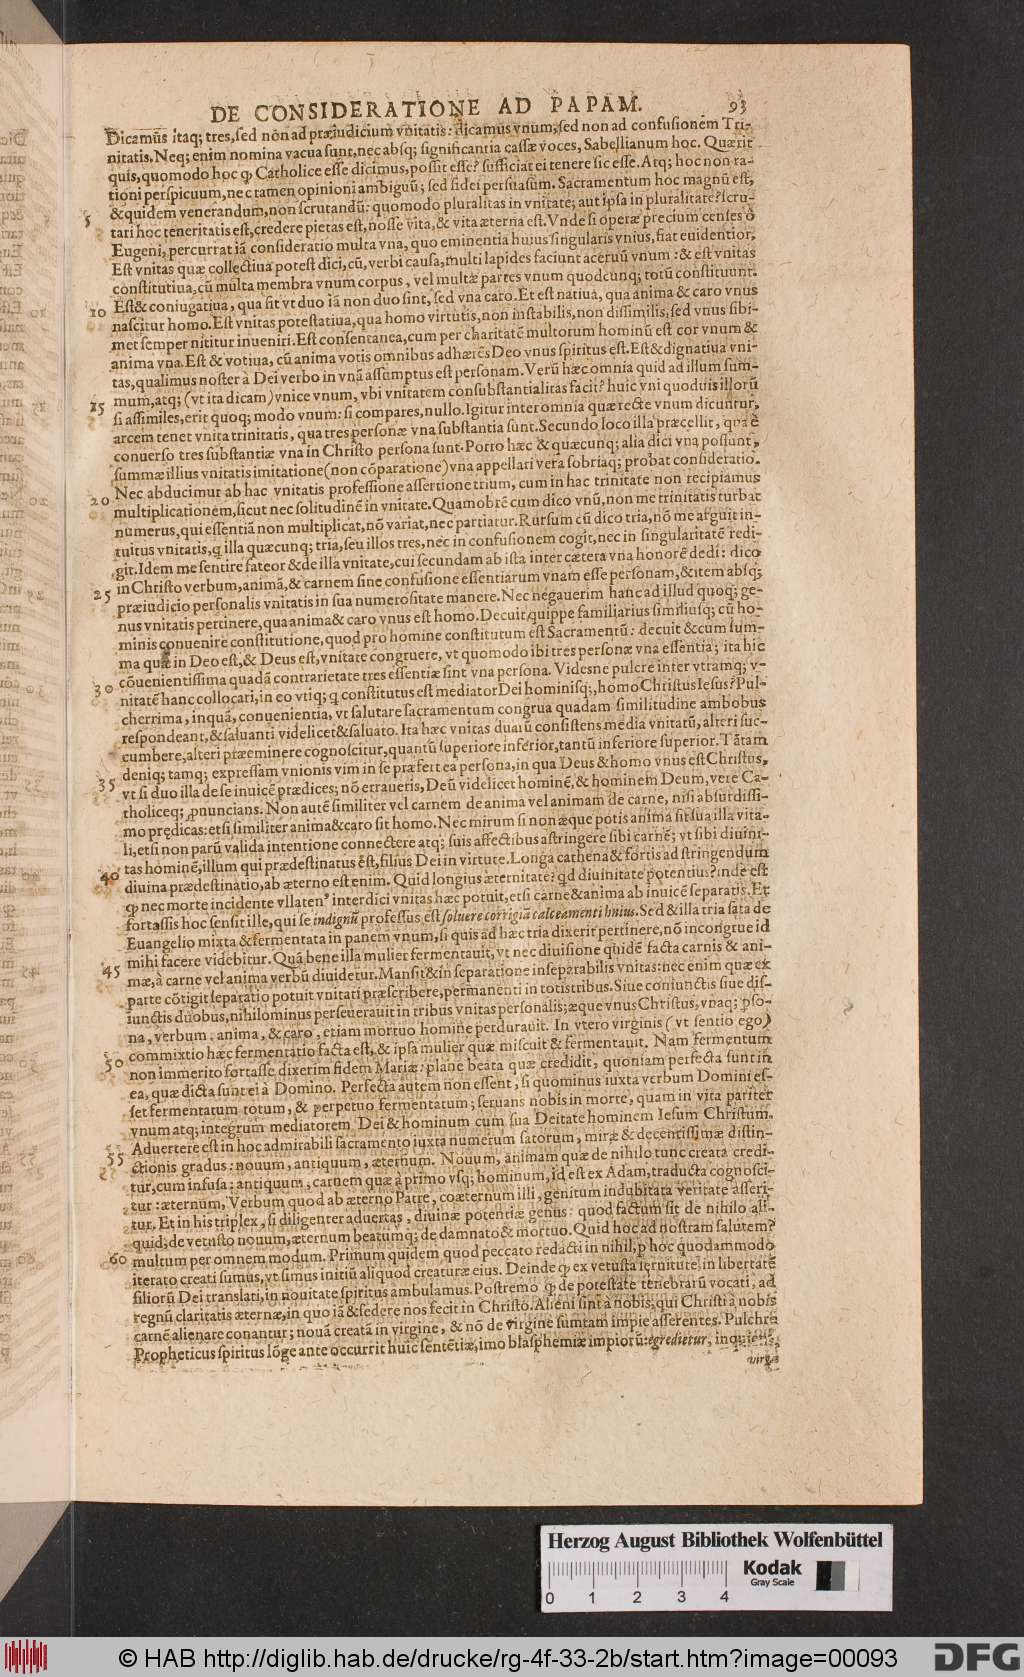 DE CONSIDERATIONE AD PAPAM. 93
Dicamus itaq; tres, sed nõn ad præiudicium vnitatis: dicamus vnum, sed non ad confusionem Tri-
nitatis. Neq; enim nomina vacua sunt, nec absq; significantia cassæ voces, Sabellianum hoc. Quærit
quis, quomodo hoc ꝙ Catholice esse dicimus, possit esse? sufficiat ei tenere sic esse. Atq; hoc non ra-
tioni perspicuum, nec tamen opinioni ambiguũ; sed fidei persuasum. Sacramentum hoc magnũ est,
5 & quidem venerandum, non scrutandũ: quomodo pluralitas in vnitate, aut ipsa in pluralitate? scru-
tari hoc temeritatis est, credere pietas est, nosse vita, & vita æterna est. Vnde si operæ precium censes ô
Eugeni, percurrat iã consideratio multa vna, quo eminentia huius singularis vnius, fiat euidentior.
Est vnitas quæ collectiua potest dici, cũ, verbi causa, multi lapides faciunt aceruũ vnum: & est vnitas
constitutiua, cũ multa membra vnum corpus, vel multæ partes vnum quodcunq; totũ constituunt.
10 Est & coniugatiua, qua fit vt duo iã non duo sint, sed vna caro. Et est natiua, qua anima & caro vnus
nascitur homo. Est vnitas potestatiua, qua homo virtutis, non instabilis, non dissimilis, sed vnus sibi-
met semper nititur inueniri. Est consentanea, cum per charitatẽ multorum hominũ est cor vnum &
anima vna. Est & votiua, cũ anima votis omnibus adhærẽs Deo vnus spiritus est. Est & dignatiua vni-
tas, qua limus noster à Dei verbo in vnã assumptus est personam. Verũ hæc omnia quid ad illum sum-
15 mum, atq; (vt ita dicam) vnice vnum, vbi vnitatem consubstantialitas facit? huic vni quoduis illorũ
si assimiles, erit quoq; modo vnum: si compares, nullo. Igitur inter omnia quæ recte vnum dicuntur,
arcem tenet vnita trinitatis, qua tres personæ vna substantia sunt. Secundo loco illa præcellit, qua ẽ
conuerso tres substantiæ vna in Christo persona sunt. Porro hæc & quæcunq; alia dici vna possunt,
summæ illius vnitatis imitatione (non cõparatione) vna appellari vera sobriaq; probat consideratio.
20 Nec abducimur ab hac vnitatis professione assertione trium, cum in hac trinitate non recipiamus
multiplicationem, sicut nec solitudinẽ in vnitate. Quamobrẽ cum dico vnũ, non me trinitatis turbat
numerus, qui essentiã non multiplicat, nõ variat, nec partiatur. Rursum cũ dico tria, nõ me arguit in-
tuitus vnitatis, q̃ illa quæcunq; tria, seu illos tres, nec in confusionem cogit, nec in singularitatẽ redi-
git. Idem me sentire fateor & de illa vnitate, cui secundam ab ista inter cætera vna honorẽ dedi: dico
25 in Christo verbum, animã, & carnem sine confusione essentiarum vnam esse personam, & item absq;
præiudicio personalis vnitatis in sua numerositate manere. Nec negauerim hanc ad illud quoq; ge-
nus vnitatis pertinere, qua anima & caro vnus est homo. Decuit quippe familiarius similiusq; cũ ho-
minis conuenire constitutione, quod pro homine constitutum est Sacramentũ: decuit & cum sum-
ma quæ in Deo est, & Deus est, vnitate congruere, vt quomodo ibi tres personæ vna essentia; ita hic
30 cõuenientissima quadã contrarietate tres essentiæ sint vna persona. Videsne pulcre inter vtramq; v-
nitatẽ hanc collocari, in eo vtiq; q constitutus est mediator Dei hominisq;, homo Christus Iesus? Pul-
cherrima, inquã, conuenientia, vt salutare sacramentum congrua quadam similitudine ambobus
respondeant, & saluanti videlicet & saluato. Ita hæc vnitas duarũ consistens media vnitatũ, alteri suc-
cumbere, alteri præeminere cognoscitur, quantũ superiore inferior, tantũ inferiore superior. Tãtam
deniq; tamq; expressam vnionis vim in se præfert ea persona, in qua Deus & homo vnus est Christus,
35 vt si duo illa de se inuicẽ prædices; nõ erraueris, Deũ videlicet hominẽ, & hominem Deum, vere Ca-
tholiceq; ꝓnuncians. Non autẽ similiter vel carnem de anima vel animam de carne, nisi absurdissi-
mo prędicas: etsi similiter anima & caro sit homo. Nec mirum si non æque potis anima sit sua illa vita-
li, etsi non parũ valida intentione connectere atq; suis affectibus astringere sibi carnẽ; vt sibi diuini-
tas hominẽ, illum qui prædestinatus est, filius Dei in virtute. Longa cathena & fortis ad stringendum
40 diuina prædestinatio, ab æterno est enim. Quid longius æternitate? qd diuinitate potentius? inde est
ꝙ nec morte incidente vllaten9 interdici vnitas hæc potuit, etsi carne & anima ab inuicẽ separatis. Et
fortassis hoc sensit ille, qui se indignũ professus est soluere corrigiã calceamenti huius. Sed & illa tria sata de
Euangelio mixta & fermentata in panem vnum, si quis ad hæc tria dixerit pertinere, nõ incongrue id
mihi facere videbitur. Quã bene illa mulier fermentauit, vt nec diuisione quidẽ facta carnis & ani-
45 mæ, à carne vel anima verbũ diuidetur. Mansit & in separatione inseparabilis vnitas: nec enim quæ ex
parte cõtigit separatio potuit vnitati præscribere, permanenti in totis tribus. Siue coniunctis siue dis-
iunctis duobus, nihilominus perseuerauit in tribus vnitas personalis; æque vnus Christus, vnaq; ꝑso-
na, verbum, anima, & caro, etiam mortuo homine perdurauit. In vtero virginis (vt sentio ego)
commixtio hæc fermentatio facta est, & ipsa mulier quæ miscuit & fermentauit. Nam fermentum
50 non immerito fortasse dixerim fidem Mariæ: plane beata quæ credidit, quoniam perfecta sunt in
ea, quæ dicta sunt ei à Domino. Perfecta autem non essent, si quominus iuxta verbum Domini es-
set fermentatum totum, & perpetuo fermentatum; seruans nobis in morte, quam in vita pariter
vnum atq; integrum mediatorem Dei & hominum cum sua Deitate hominem Iesum Christum.
Aduertere est in hoc admirabili sacramento iuxta numerum satorum, miræ & decentissimæ distin-
55 ctionis gradus: nouum, antiquum, æternum. Nouum, animam quæ de nihilo tunc creata credi-
tur, cum infusa: antiquum, carnem quæ à primo vsq; hominum, id est ex Adam, traducta cognosci-
tur: æternum, Verbum quod ab æterno Patre, coæternum illi, genitum indubitata veritate asseri-
tur. Et in his triplex, si diligenter aduertas, diuinæ potentiæ genus: quod factum sit de nihilo ali-
quid, de vetusto nouum, æternum beatumq; de damnato & mortuo. Quid hoc ad nostram salutem?
60 multum per omnem modum. Primum quidem quod peccato redacti in nihil, ꝑ hoc quodammodo
iterato creati sumus, vt simus initiũ aliquod creaturæ eius. Deinde ꝙ ex vetusta seruitute in libertatẽ
filiorũ Dei translati, in nouitate spiritus ambulamus. Postremo ꝙ de potestate tenebrarũ vocati, ad
regnũ claritatis æternæ, in quo iã & sedere nos fecit in Christo. Alieni sint à nobis, qui Christi à nobis
carnẽ alienare conantur; nouã creatã in virgine, & nõ de virgine sumtam impie asserentes. Pulchre
Propheticus spiritus lõge ante occurrit huic sentẽtiæ, imo blasphemiæ impiorũ: egredietur, inquiens,
virga
Herzog August Bibliothek Wolfenbüttel
Kodak
Gray Scale
0 1 2 3 4
© HAB http://diglib.hab.de/drucke/rg-4f-33-2b/start.htm?image=00093
DFG